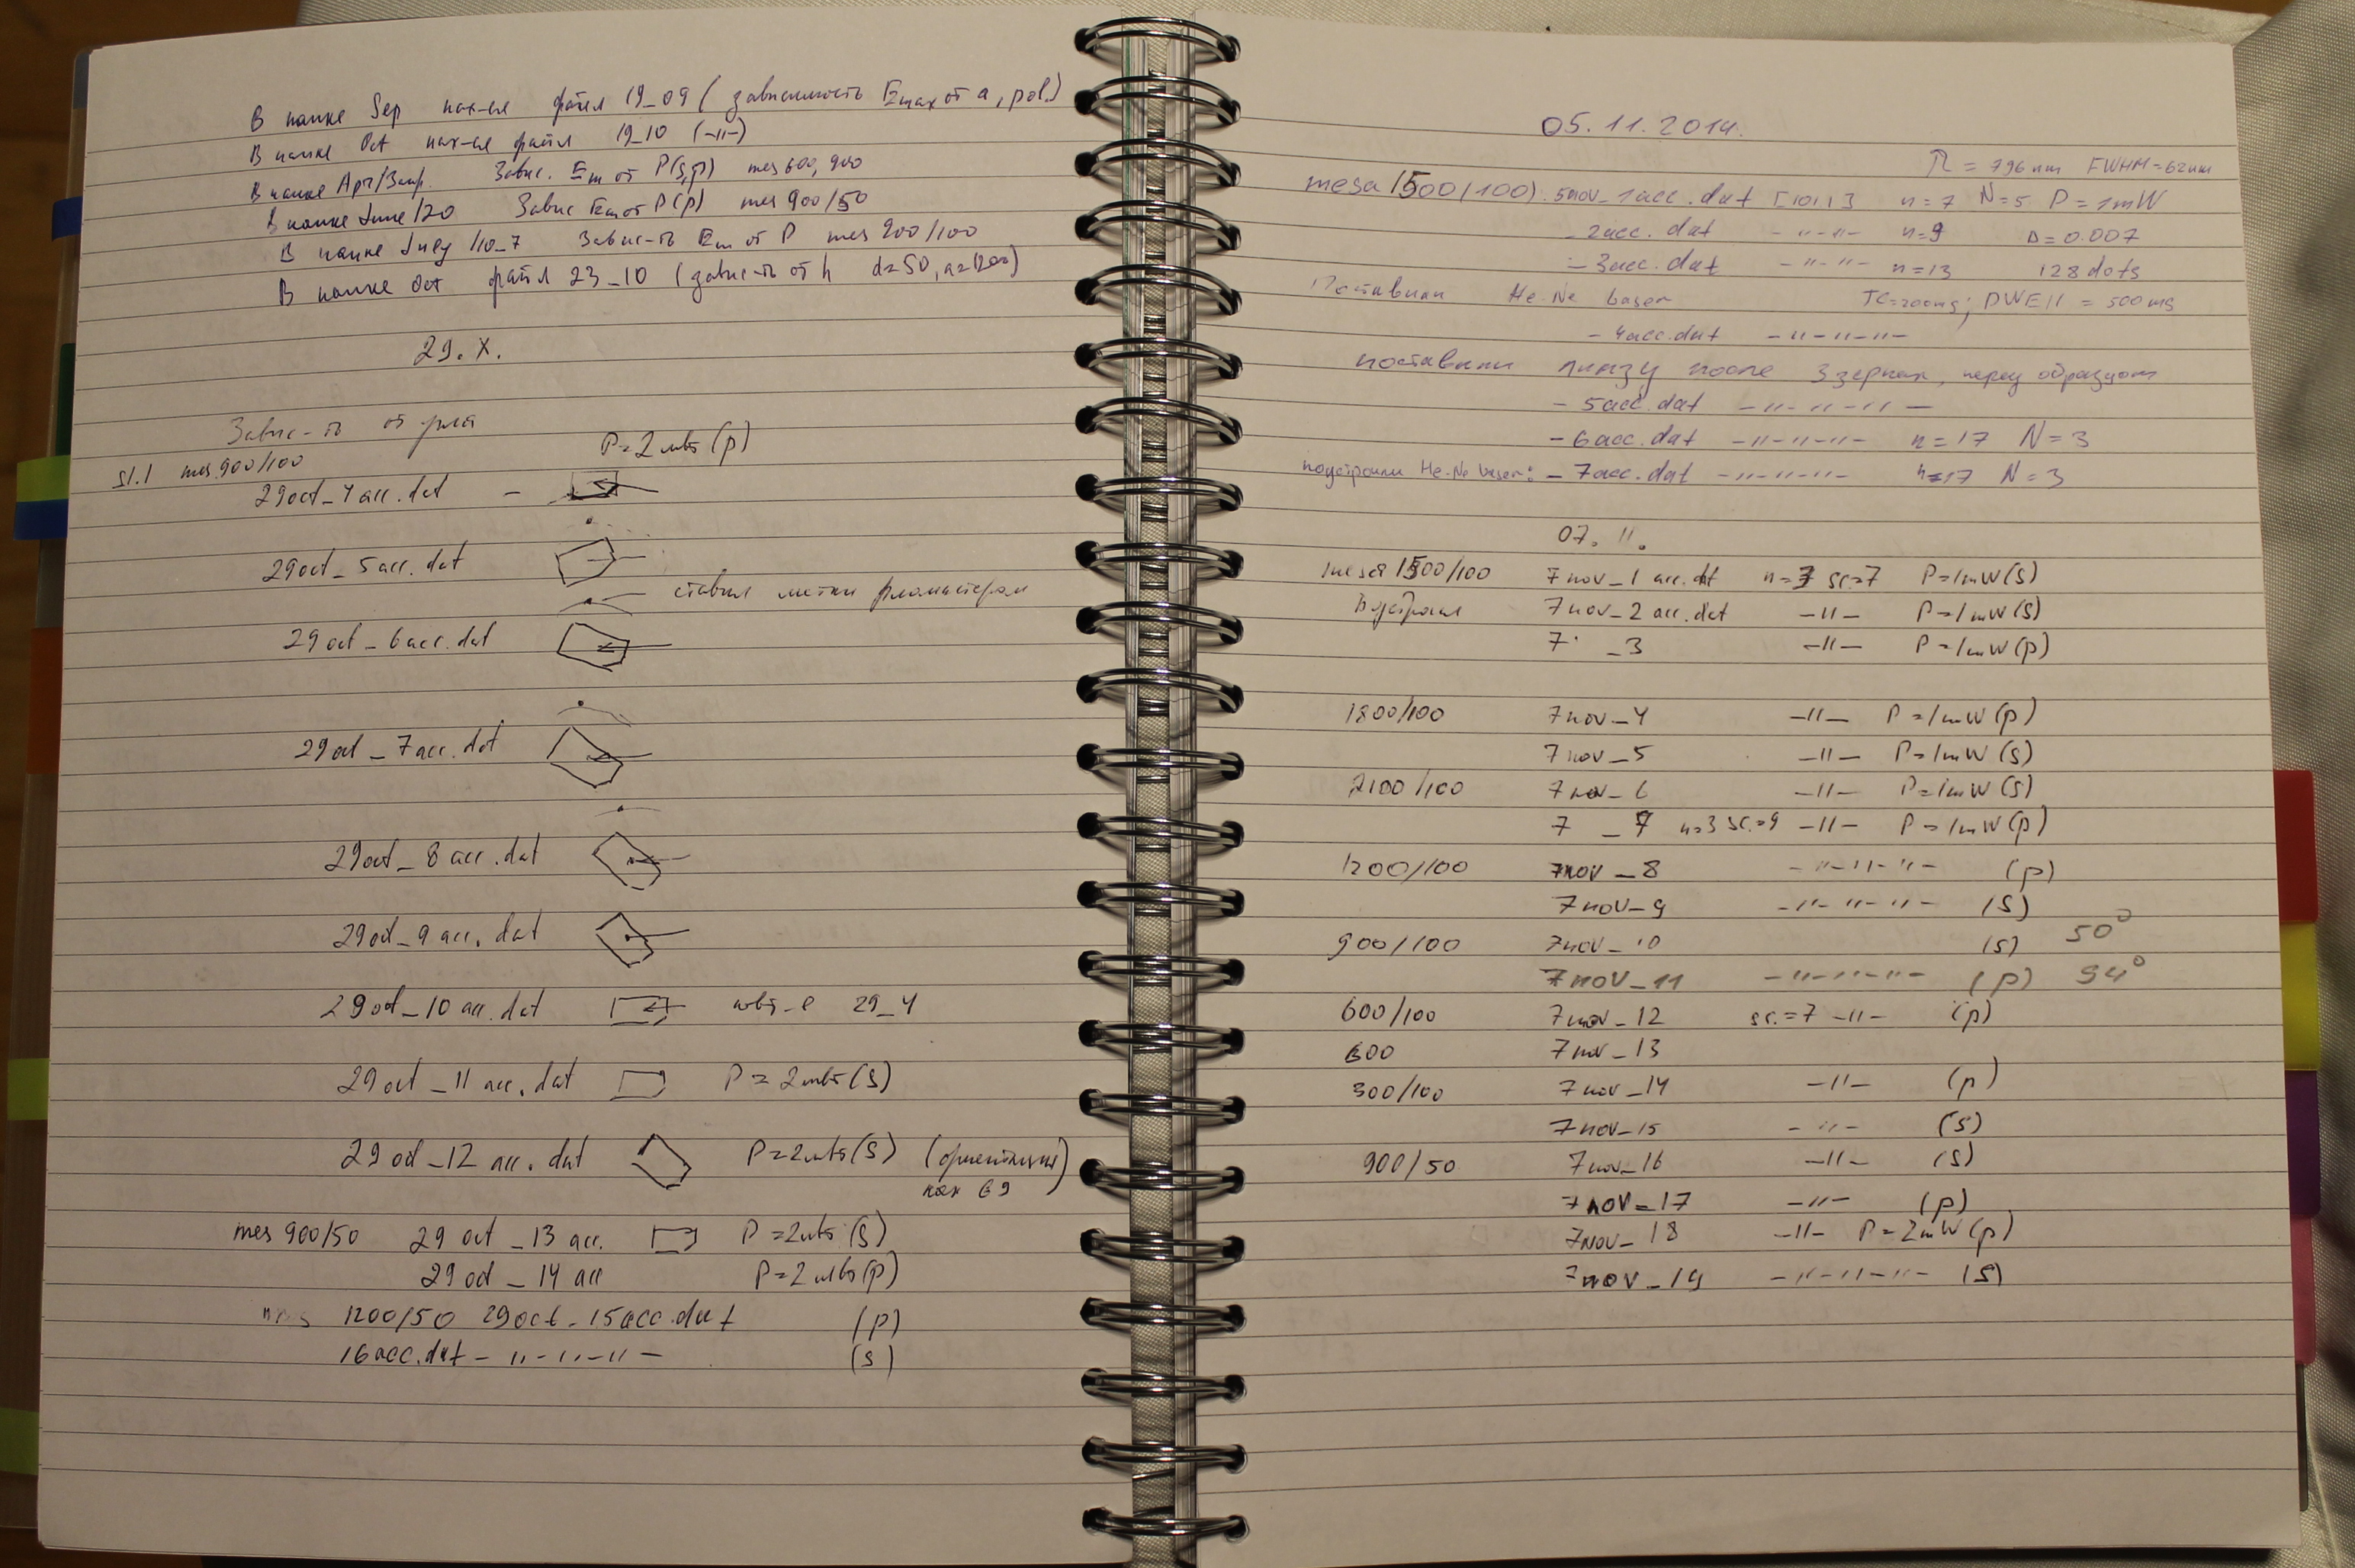 В папке Sep нах-ся файл 19_09 (зависимость Emax от a, pol.)
В папке Oct нах-ся файл 19_10 (-"-)
В папке Apr/ Завис. Em от P(s,p) mes 600, 900
В папке June/20 Завис Em от P(p) mes 900/50
В папке July/10_7 Завис-ть Em от P mes 900/100
В папке Oct файл 23_10 (завис-ть от h d=50, a=1200)
29.X.
Завис-ть от угла
P=2мвт(p)
sl.1 mes 900/100
29oct_4acc.dat -
29oct_5acc.dat
ставил метки фломастером
29oct_6acc.dat
29oct_7acc.dat
29oct_8acc.dat
29oct_9acc.dat
29oct_10acc.dat 29_4
29oct_11acc.dat P=2мвт(s)
29oct_12acc.dat P=2мвт(s) (ориентация
как в 9)
mes 900/50 29oct_13acc. P=2мвт(s)
29oct_14acc P=2мвт(p)
mes 1200/50 29oct-15acc.dat (p)
16acc.dat - " - " - " - (s)
05.11.2014.
λ = 796nm FWHM=62nm
mesa 1500/100): 5nov_1acc.dat n=7 N=5 P=1mW
-2acc.dat -"-"- n=9 D=0.007
-3acc.dat -"-"- n=13 128dots
Поставили He-Ne laser TC=200ms; DWELL = 500ms
-4acc.dat -"-"-"-
поставили линзу после 3 зеркал, перед образцом
-5acc.dat -"-"-"-
-6acc.dat -"-"-"- n=17 N=3
подстроили He-Ne laser: -7acc.dat -"-"-"- n=17 N=3
07.11.
mesa 1500/100 7nov_1acc.dat n=3 sc=7 P=1mW(s)
7nov_2acc.dat -"- P=1mW(s)
7 _3 -"- P=1mW(p)
1800/100 7nov_4 -"- P=1mW(p)
7nov_5 -"- P=1mW(s)
2100/100 7nov_6 -"- P=1mW(s)
7 _7 n=3 sc.=9 -"- P=1mW(p)
1200/100 7nov_8 -"-"-"- (p)
7nov_9 -"-"-"- (s)
900/100 7nov_10 (s) 50°
7nov_11 -"-"-"- (p) 94°
600/100 7nov_12 sc.=7 -"- (p)
600 7nov_13
300/100 7nov_14 -"- (p)
7nov_15 -"- (s)
900/50 7nov_16 -"- (s)
7nov_17 -"- (p)
7nov_18 -"- P=2mW(p)
7nov_19 -"-"-"- (s)